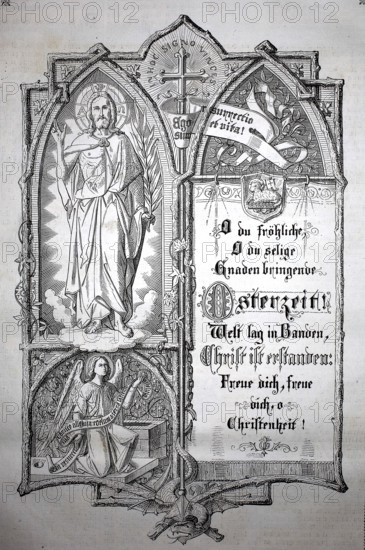 IN HOC SIGNO VINCES
Ego
sum
resurrectio
et vita!
O du fröhliche,
O du selige
Gnaden bringende
Osterzeit!
Welt lag in Banden,
Christ ist erstanden:
Freue dich, freue
dich, o
Christenheit!
PHOTO12